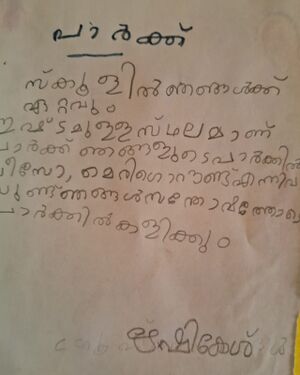 പാർക്ക്
സ്കൂളിൽ ഞങ്ങൾക്ക്
ഏറ്റവും
ഇഷ്ടമുള്ള സ്ഥലമാണ്
പാർക്ക് ഞങ്ങളുടെ പാർക്കിൽ
സീസോ, മെറിഗൊറൗണ്ട് എന്നിവ
ഉണ്ട് ഞങ്ങൾ സന്തോഷത്തോടെ
പാർക്കിൽ കളിക്കും